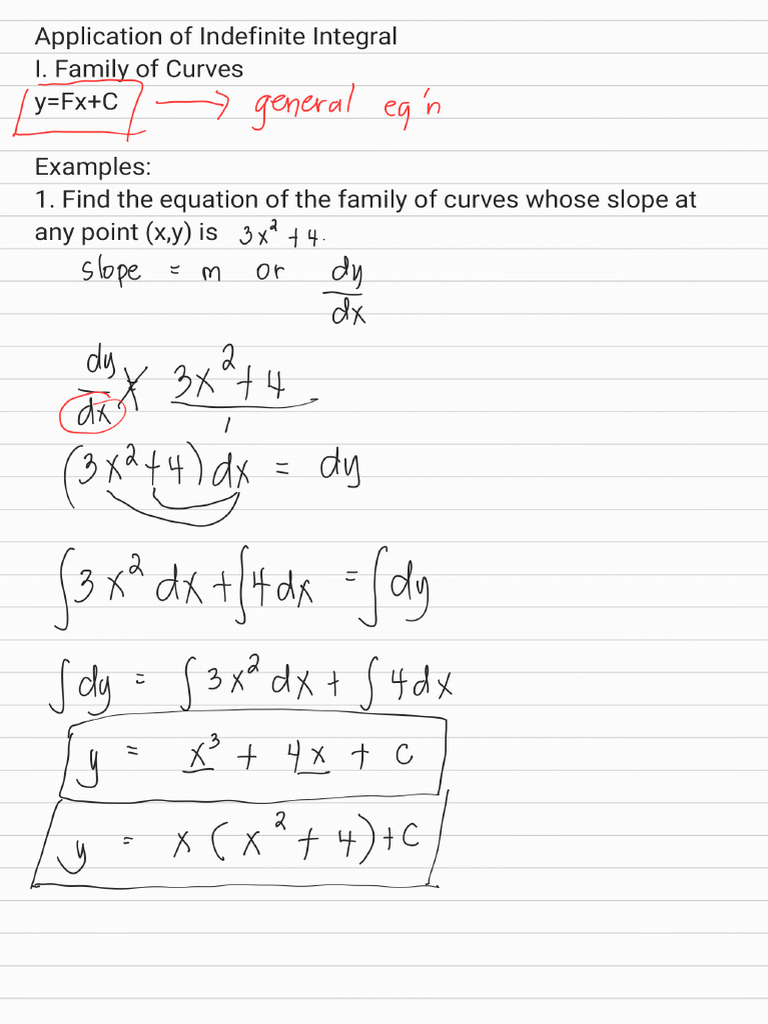 Application of Indefinite Integral
I. Family of Curves
y=Fx+C → general eq'n
Examples:
1. Find the equation of the family of curves whose slope at
any point (x,y) is 3x² + 4.
slope = m or dy/dx
dy/dx = 3x² + 4 / 1
(3x² + 4) dx = dy
∫3x² dx + ∫4dx = ∫dy
∫dy = ∫3x² dx + ∫4dx
y = x³ + 4x + C
y = x(x² + 4) + C